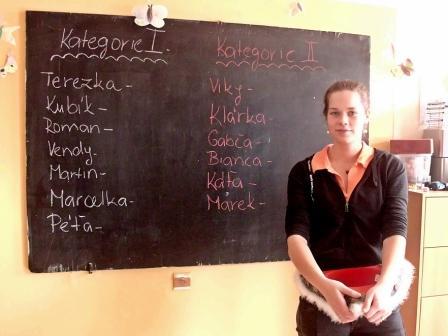 Kategorie I.
Terežka -
Kubík -
Roman -
Vendy.
Martin -
Marcelka -
Péťa -
Kategorie II
Viky -
Klárka -
Gabča -
Bianca -
Káťa -
Márek -